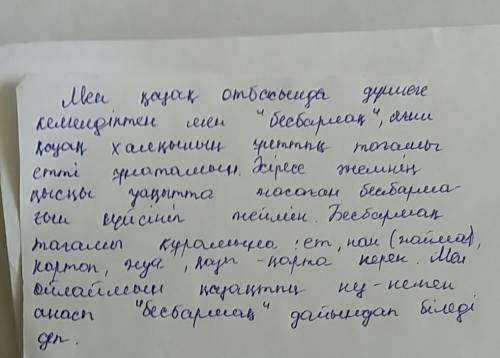 Мен қазақ отбасында дүниеге
келгендіктен мен "бесбармақ", яғни
қазақ халқының ұлттық тағамы
етті ұнатамын. Әсіресе әжемнің
қысқы уақытта жасаған бесбарма-
ғын сүйсініп жеймін. Бесбармақ
тағамы құрамына : ет, нан (жайма),
картоп, жуа, қазы - қарта керек. Мен
ойлаймын қазақтың
анасы "бесбармақ" дайындап біледі
деп.